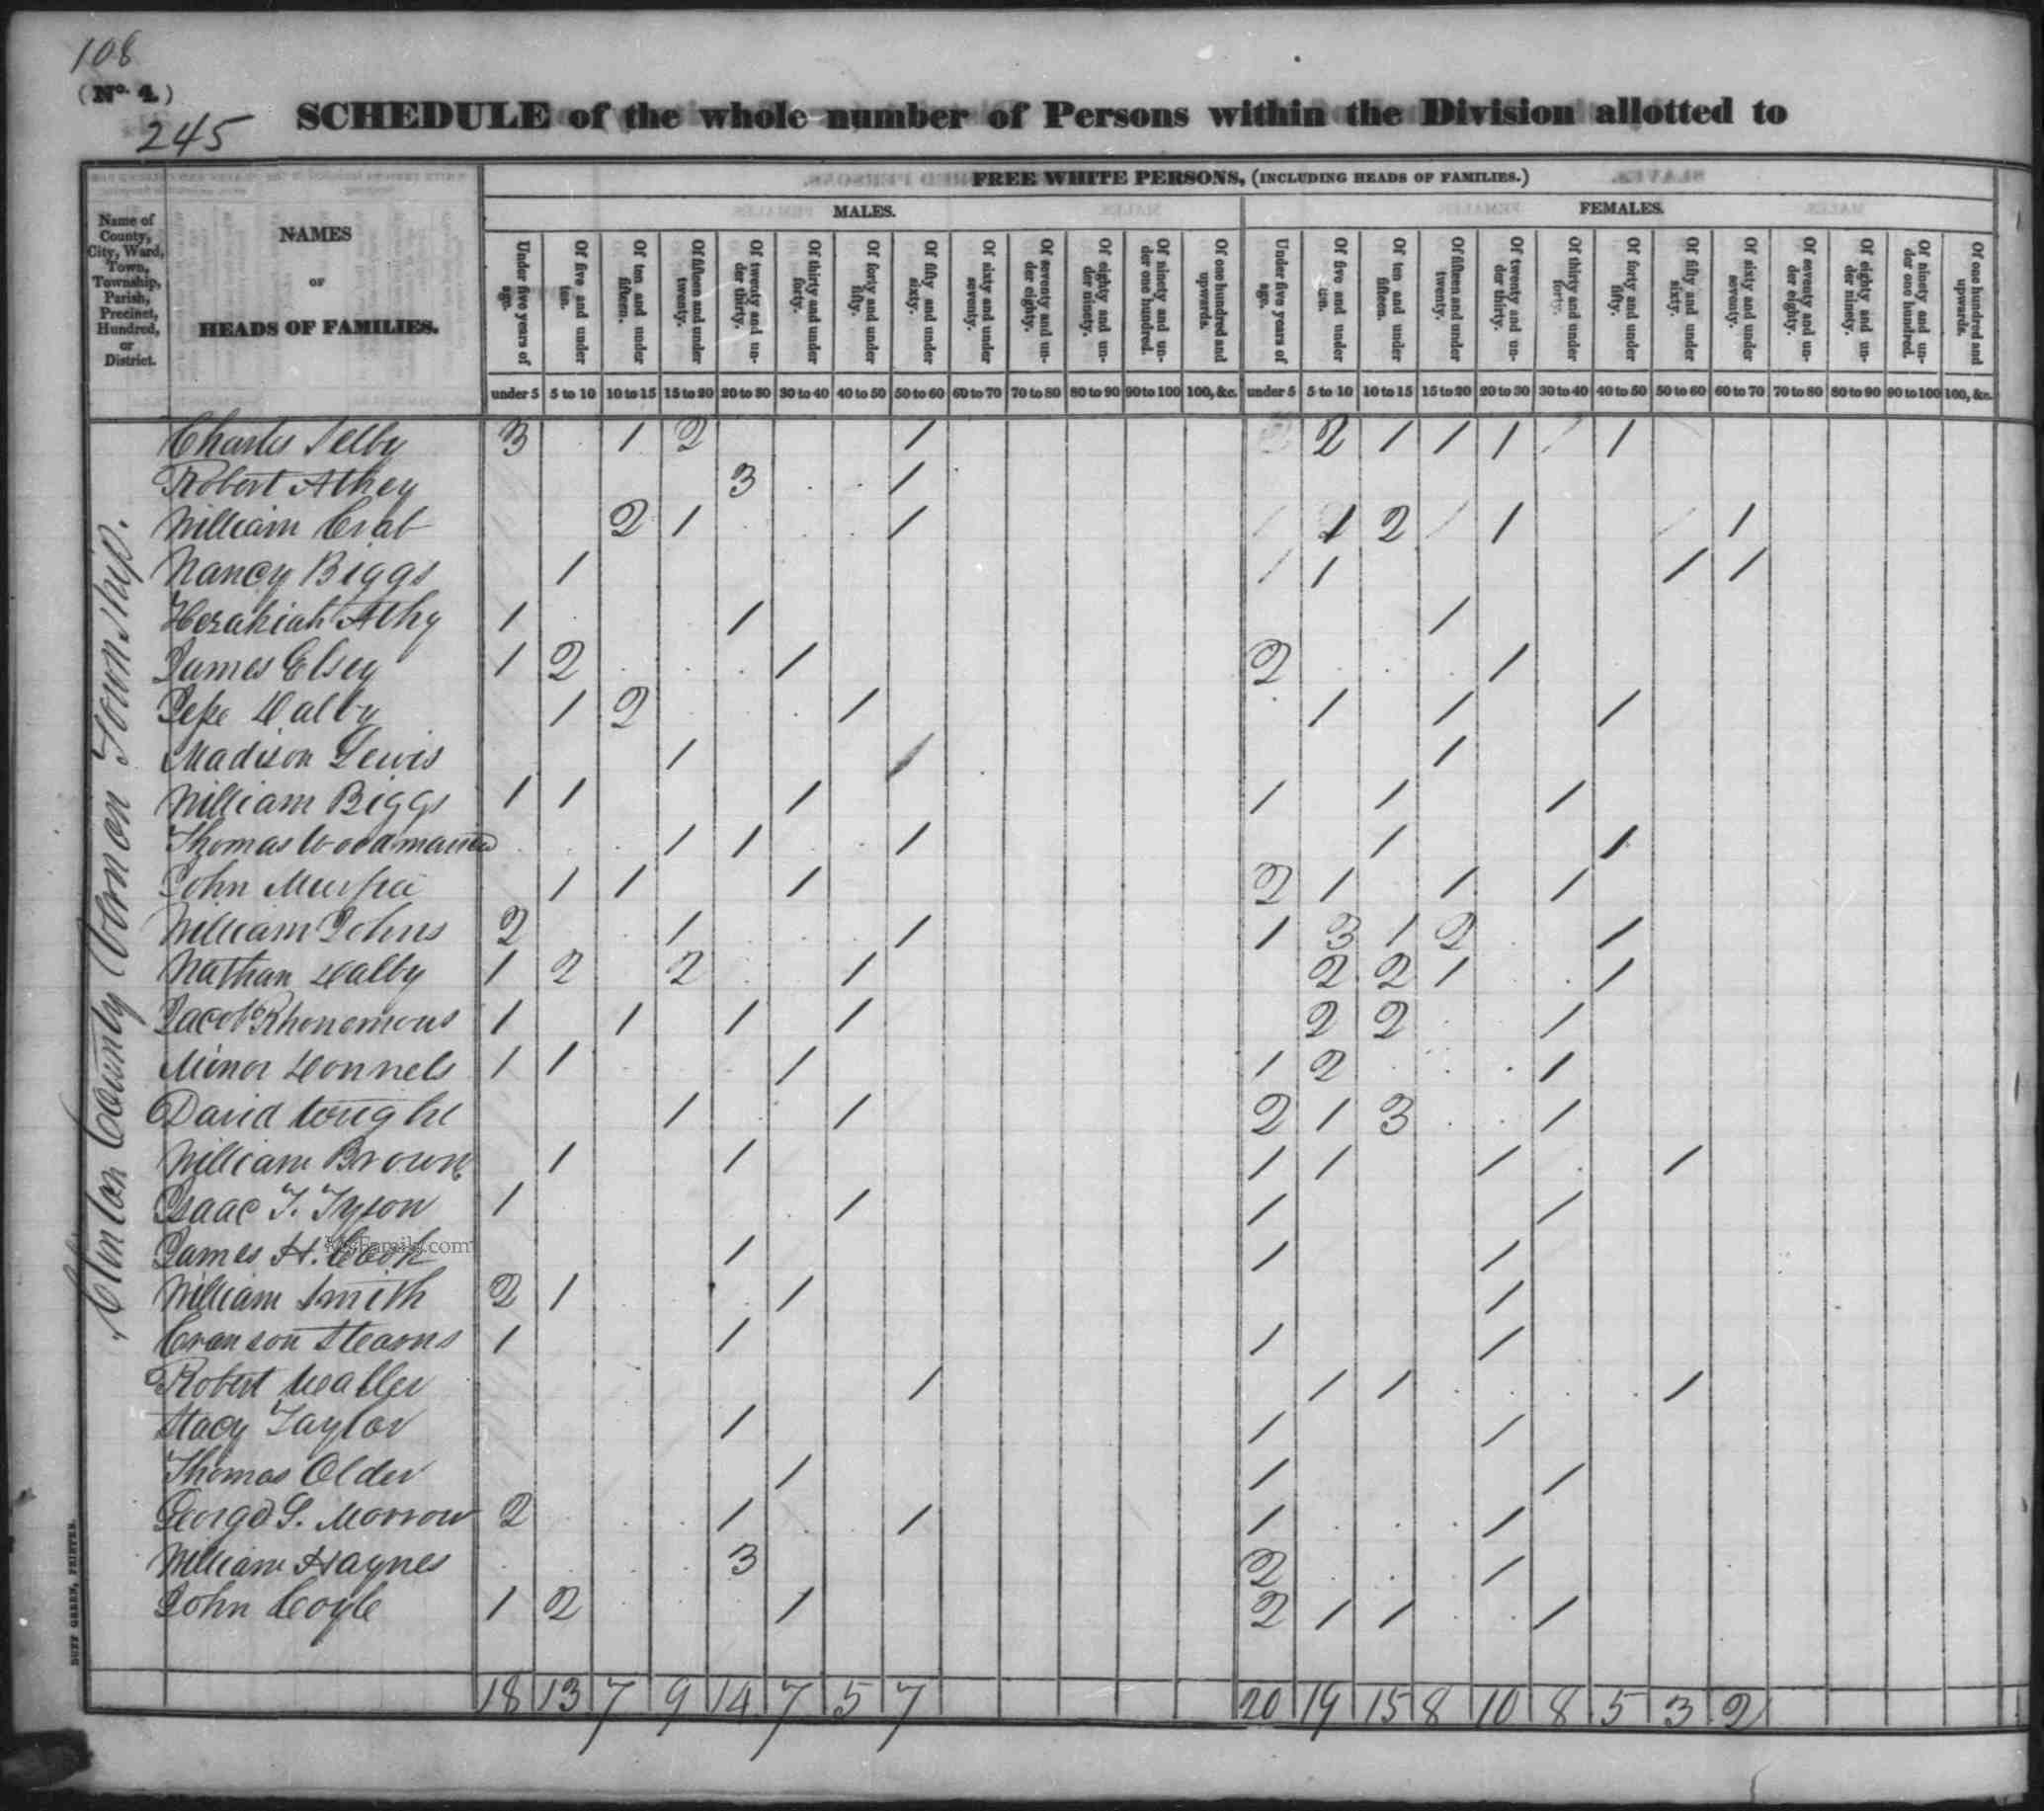 108
(No. 4.)
245
SCHEDULE of the whole number of Persons within the Division allotted to
FREE WHITE PERSONS, (INCLUDING HEADS OF FAMILIES.)
MALES. FEMALES.
Name of County, City, Ward, Town, Township, Parish, Precinct, Hundred, or District.
NAMES
OF
HEADS OF FAMILIES.
Under five years of age. Of five and under ten. Of ten and under fifteen. Of fifteen and under twenty. Of twenty and under thirty. Of thirty and under forty. Of forty and under fifty. Of fifty and under sixty. Of sixty and under seventy. Of seventy and under eighty. Of eighty and under ninety. Of ninety and under one hundred. Of one hundred and upwards. Under five years of age. Of five and under ten. Of ten and under fifteen. Of fifteen and under twenty. Of twenty and under thirty. Of thirty and under forty. Of forty and under fifty. Of fifty and under sixty. Of sixty and under seventy. Of seventy and under eighty. Of eighty and under ninety. Of ninety and under one hundred. Of one hundred and upwards.
under 5 5 to 10 10 to 15 15 to 20 20 to 30 30 to 40 40 to 50 50 to 60 60 to 70 70 to 80 80 to 90 90 to 100 100, &c. under 5 5 to 10 10 to 15 15 to 20 20 to 30 30 to 40 40 to 50 50 to 60 60 to 70 70 to 80 80 to 90 90 to 100 100, &c.
Clinton County Vernon Township.
Charles Selby 3 1 2 1 2 1 1 1 1
Robert Athey 3 1
William Crab 2 1 1 1 2 1 1
Nancy Biggs 1 1 1 1 1
Hezakiah Athy 1 1 1
James Elsey 1 2 1 2 1
Jesse Dalby 1 2 1 1 1 1
Madison Lewis 1 1
William Biggs 1 1 1 1 1 1
Thomas 1 1 1 1 1
John 1 1 1 2 1 1 1
William Johns 2 1 1 1 3 1 2 1
Nathan Dalby 1 2 2 1 2 2 1 1
Jacob Rhonemous 1 1 1 1 2 2 1
Minor Donnels 1 1 1 1 2 1
David Wright 1 1 2 1 3 1
William Brown 1 1 1 1 1 1
Isaac T. Tyson 1 1 1 1
James H. Cook 1 1 1
William Smith 2 1 1 1
Cranson Stearns 1 1 1 1
Robert 1 1 1 1
Stacy Taylor 1 1 1
Thomas Older 1 1 1
George S. Morrow 2 1 1 1 1
William Haynes 3 2 1
John Coyle 1 2 1 2 1 1 1
18 13 7 9 14 7 5 7 20 19 15 8 10 8 5 3 2
DUFF GREEN, PRINTER.